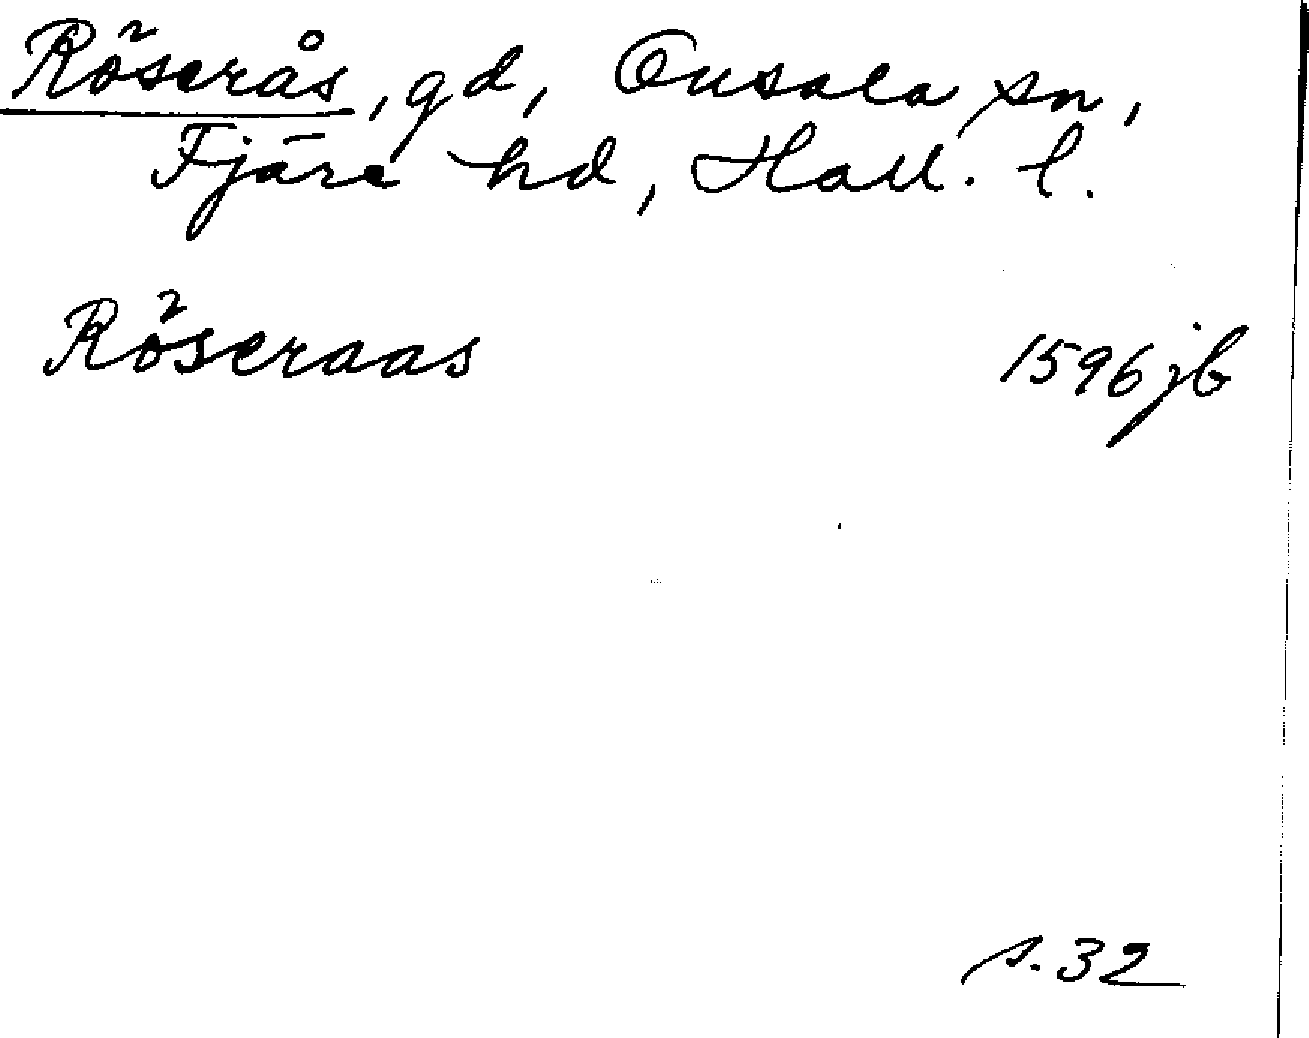 Röserås, gd, Onsala sn,
Fjäre hd, Hall. l.
Röseraas 1596 jb
s. 32